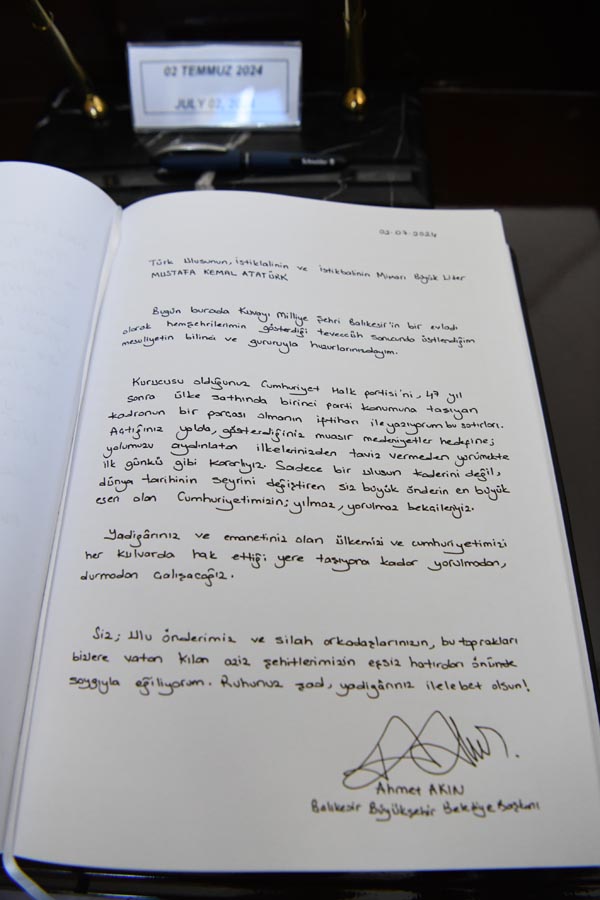 02 TEMMUZ 2024
JULY 02, 2024
Schneider
02.07.2024
Türk Ulusunun, istiklalinin ve istikbalinin Mimarı Büyük Lider
MUSTAFA KEMAL ATATÜRK
Bugün burada Kuvayı Milliye Şehri Balıkesir'in bir evladı
olarak hemşehrilerimin gösterdiği teveccüh sonucunda üstlendiğim
mesuliyetin bilinci ve gururuyla huzurlarınızdayım.
Kurucusu olduğunuz Cumhuriyet Halk partisi'ni, 47 yıl
sonra ülke sathında birinci parti konumuna taşıyan
kadronun bir parçası olmanın iftiharı ile yazıyorum bu satırları.
Açtığınız yolda, gösterdiğiniz muasır medeniyetler hedefine;
yolumuzu aydınlatan ilkelerinizden taviz vermeden yürümekte
ilk günkü gibi kararlıyız. Sadece bir ulusun kaderini değil,
dünya tarihinin seyrini değiştiren siz büyük önderin en büyük
eseri olan Cumhuriyetimizin; yılmaz, yorulmaz bekçileriyiz.
Yadigârınız ve emanetiniz olan ülkemizi ve cumhuriyetimizi
her kulvarda hak ettiği yere taşıyana kadar yorulmadan,
durmadan çalışacağız.
Siz; Ulu önderimiz ve silah arkadaşlarınızın, bu toprakları
bizlere vatan kılan aziz şehitlerimizin eşsiz hatıraları önünde
saygıyla eğiliyorum. Ruhunuz şad, yadigârınız ilelebet olsun!
Ahmet AKIN
Balıkesir Büyükşehir Belediye Başkanı